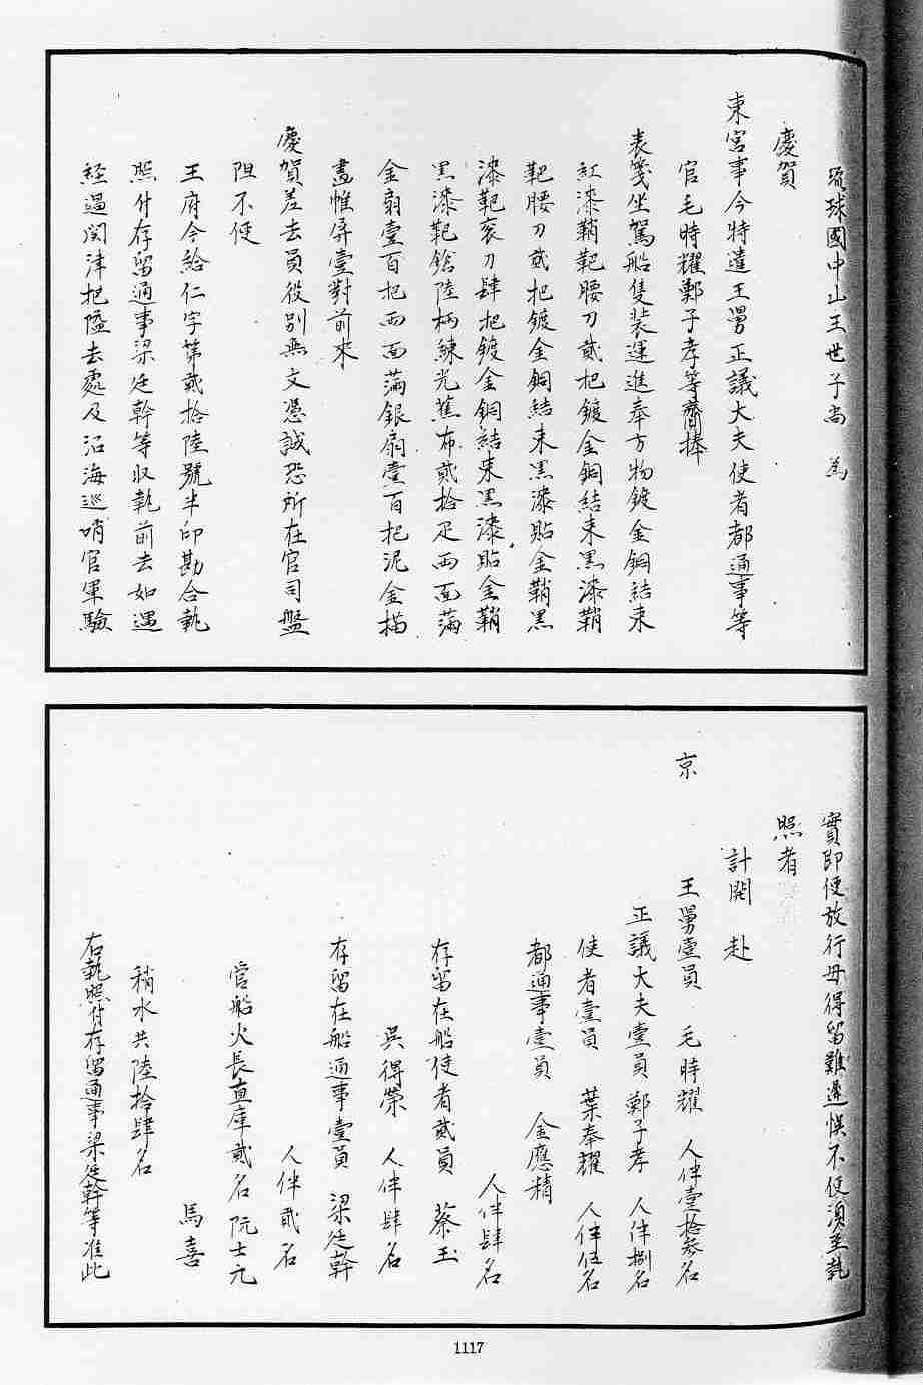 琉球國中山王世子尚　為
慶賀
東宮事今特遣王舅正議大夫使者都通事等
官毛時耀鄭子孝等齎捧
表箋坐駕船隻裝運進奉方物鍍金銅結束
紅漆鞘靶腰刀貳把鍍金銅結束黑漆鞘
靶腰刀貳把鍍金銅結束黑漆貼金鞘黑
漆靶衮刀肆把鍍金銅結束黑漆貼金鞘
黑漆靶鎗陸柄練光蕉布貳拾疋兩面滿
金扇壹百把兩面滿銀扇壹百把泥金描
畫帷屏壹對前來
慶賀差去員役別無文憑誠恐所在官司盤
阻不便
王府今給仁字第貳拾陸號半印勘合執
照付存留通事梁廷幹等収執前去如遇
經過関津把隘去處及沿海巡哨官軍驗
實即便放行毋得留難遲悞不便湏至執
照者
計開　赴
京
王舅壹員　毛時耀　人伴壹拾參名
正議大夫壹員　鄭子孝　人伴捌名
使者壹員　葉奉耀　人伴伍名
都通事壹員　金應精
人伴肆名
存留在船使者貳員　蔡玉
吳得榮　人伴肆名
存留在船通事壹員　梁廷幹
人伴貳名
官船火長直庫貳名　阮士元
馬喜
稍水共陸拾肆名
右執照付存留通事梁廷幹等准此
1117